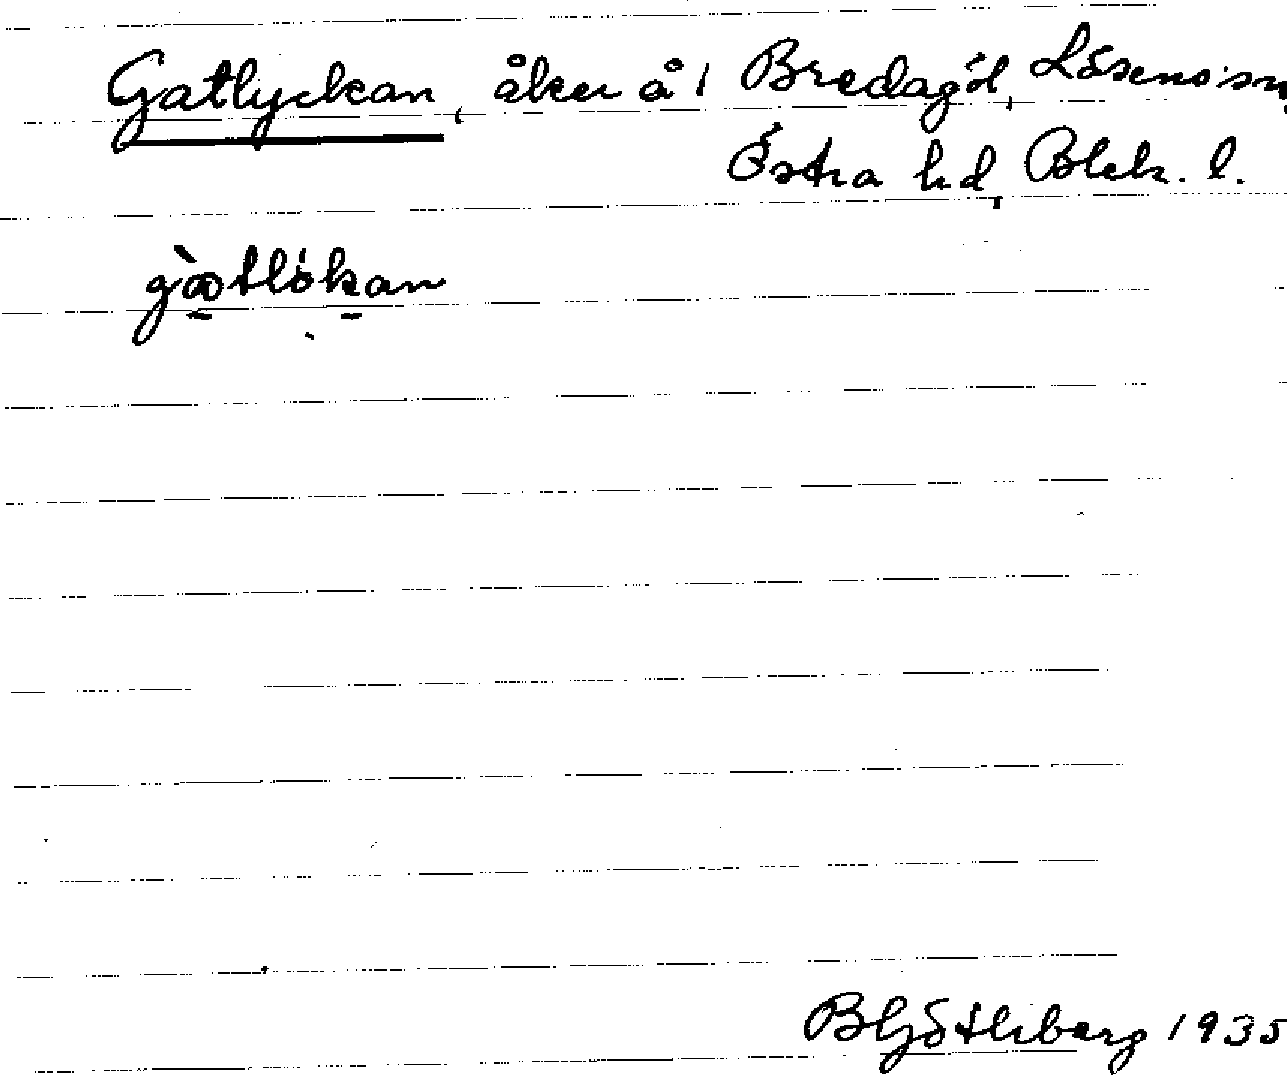 Gatlyckan, åker å 1 Bredagöl, Lösens sn,
Östra hd, Blek. l.
gàtlökan
B Götlberg 1935